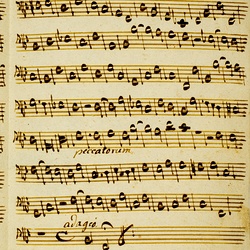 peccatorum
adagio